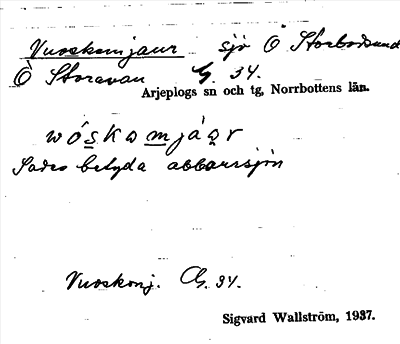 Vuoskomjaur sjö Ö Storbodsund
Ö Storavan G. 34.
Arjeplogs sn och tg, Norrbottens län.
wóskɒmjáɒr
Sades betyda abborrsjön
Vuoskonj. G. 34.
Sigvard Wallström, 1937.